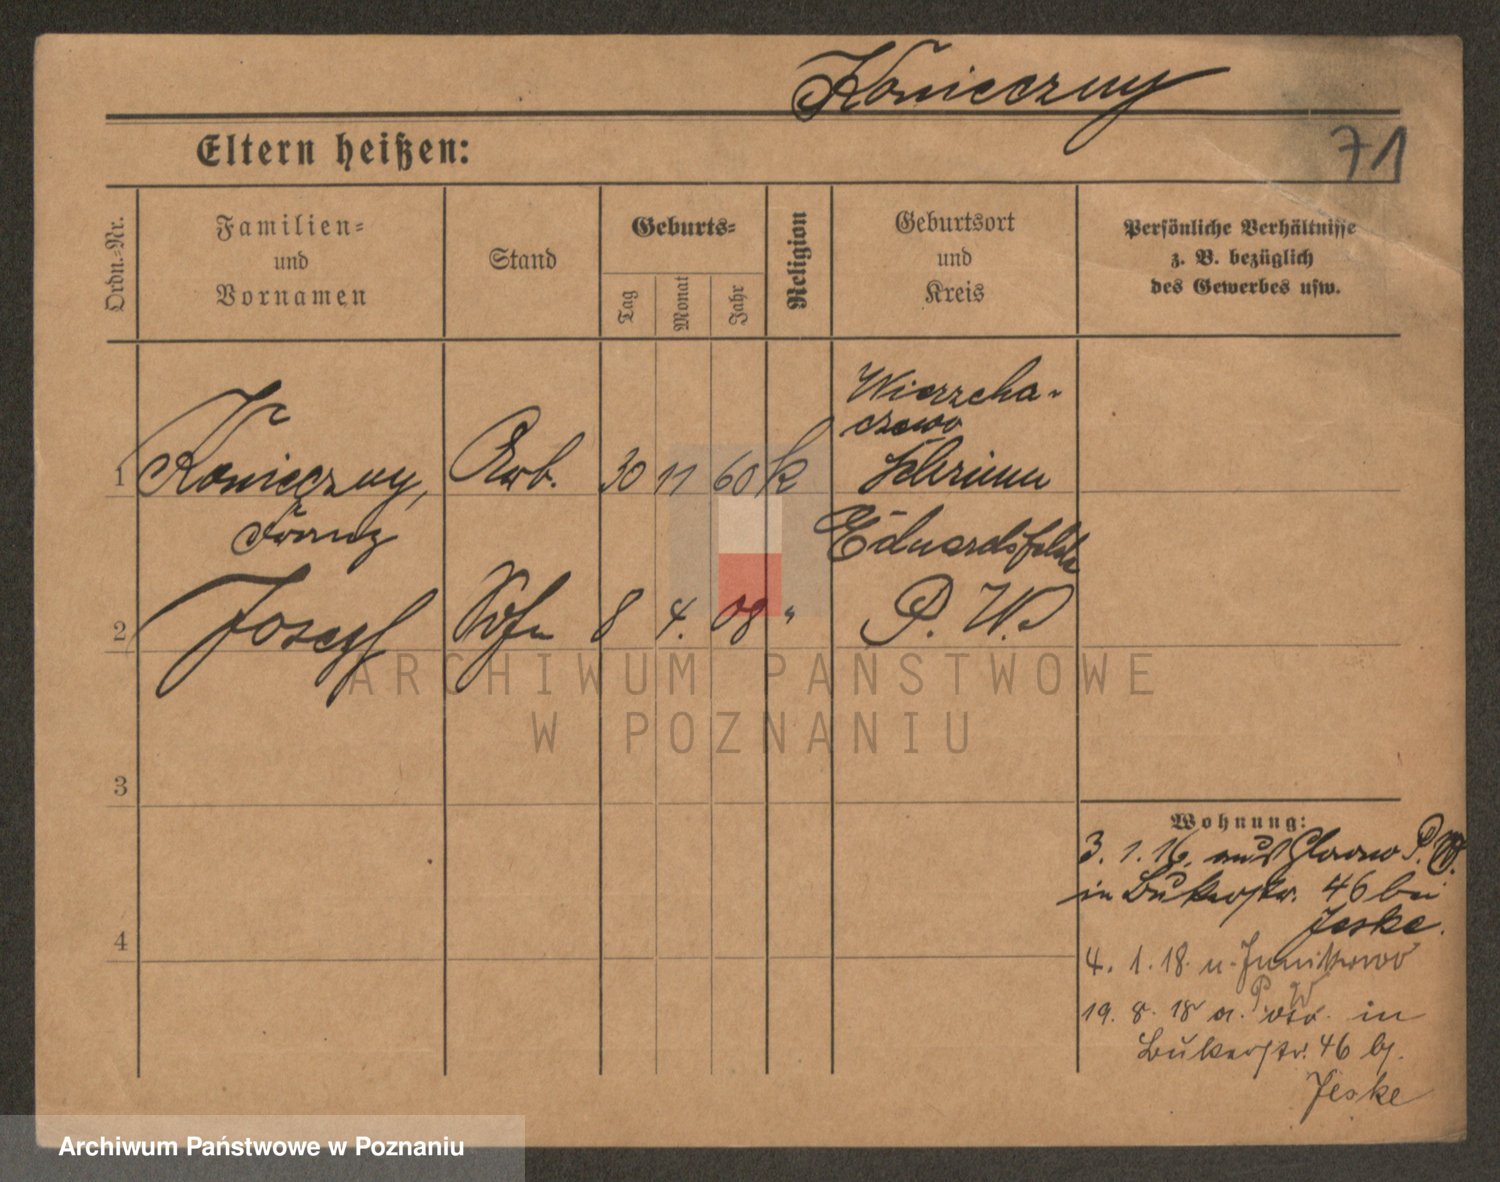 Konieczny
71
Eltern heißen:
Ordn.-Nr.
Familien-
und
Vornamen
Stand
Geburts-
Tag
Monat
Jahr
Religion
Geburtsort
und
Kreis
Persönliche Verhältnisse
z. B. bezüglich
des Gewerbes usw.
Wierzcha-
czewo
1 Konieczny, Arb. 30 11 60 k
Franz
Eduardsfelde
2 Joseph Sohn 8 4. 08 " P. W.
3
4
Wohnung:
3. 1. 16. aus P. W.
in Bukerstr. 46 bei
Jeske.
4. 1. 18. n. Junikowo
P W
19. 8. 18 a. in
Bukerstr. 46 bj.
Jeske
ARCHIWUM PAŃSTWOWE
W POZNANIU
Archiwum Państwowe w Poznaniu